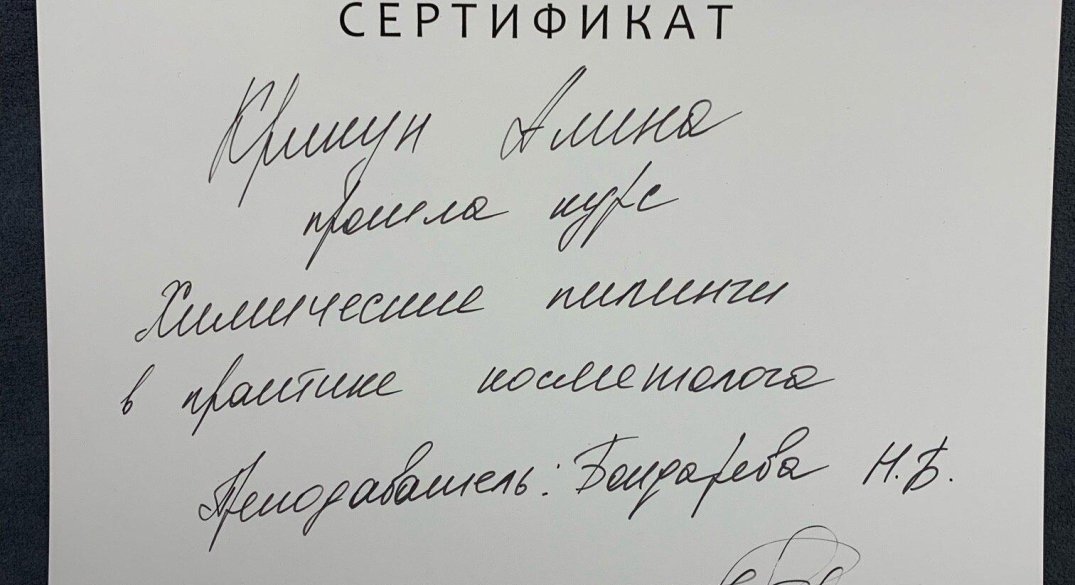 СЕРТИФИКАТ
Крикун Алина
прошла курс
Химические пилинги
в практике косметолога
Преподаватель: Бондарева Н.Б.